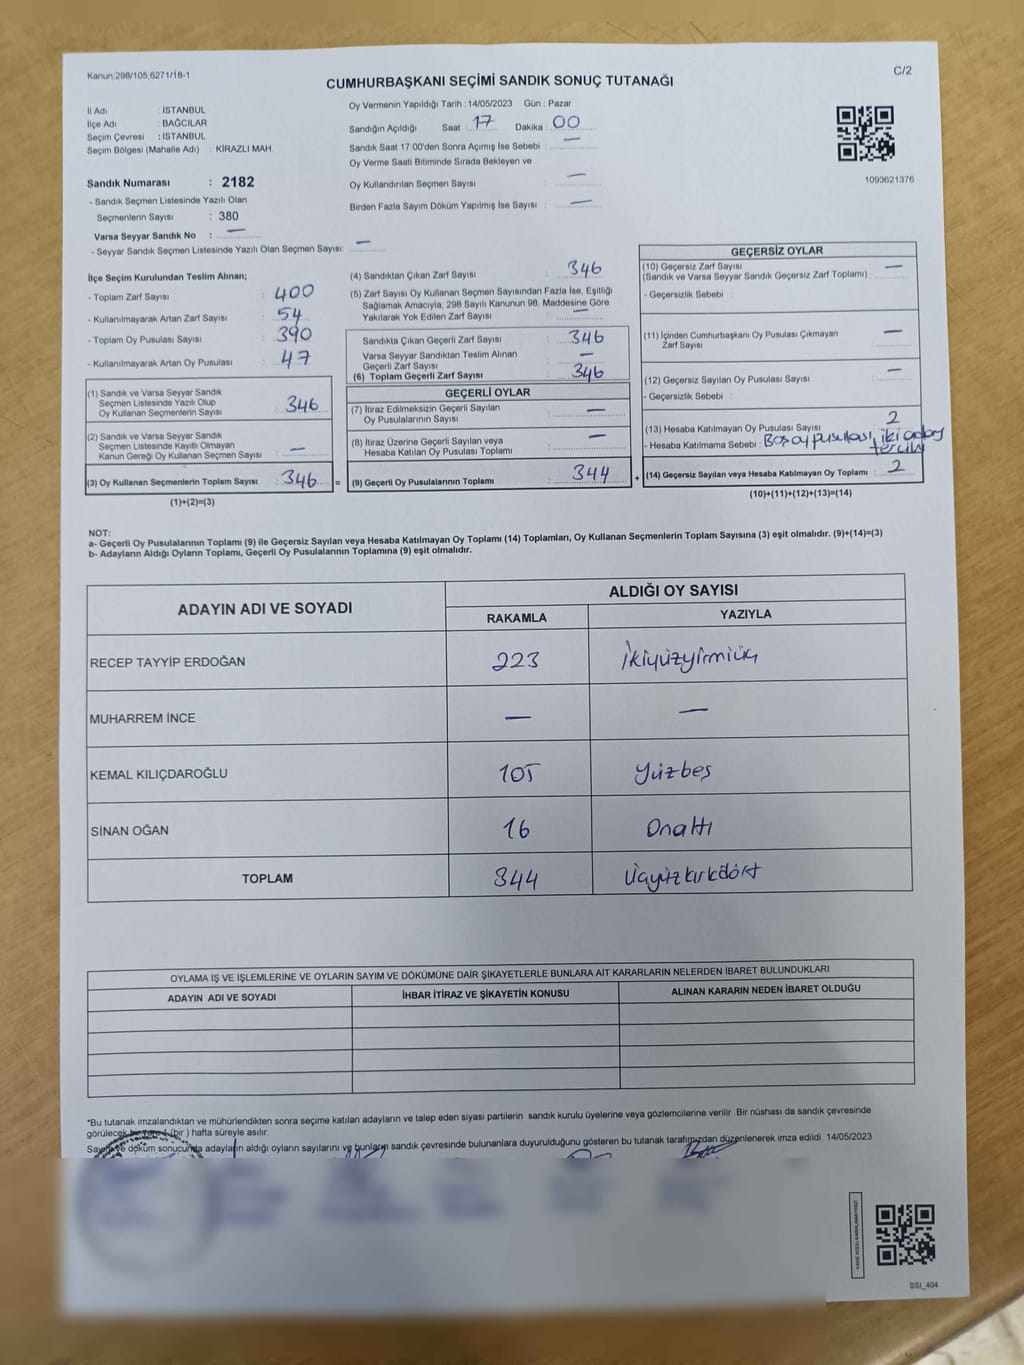 Kanun.298/105,6271/18-1
C/2
CUMHURBAŞKANI SEÇİMİ SANDIK SONUÇ TUTANAĞI
İl Adı : İSTANBUL
İlçe Adı : BAĞCILAR
Seçim Çevresi : İSTANBUL
Seçim Bölgesi (Mahalle Adı) : KİRAZLI MAH.
Sandık Numarası : 2182
- Sandık Seçmen Listesinde Yazılı Olan
Seçmenlerin Sayısı : 380
Varsa Seyyar Sandık No : —
- Seyyar Sandık Seçmen Listesinde Yazılı Olan Seçmen Sayısı: —
Oy Vermenin Yapıldığı Tarih : 14/05/2023 Gün : Pazar
Sandığın Açıldığı Saat : 17 Dakika : 00
Sandık Saat 17:00'den Sonra Açımış İse Sebebi : —
Oy Verme Saati Bitiminde Sırada Bekleyen ve
Oy Kullandırılan Seçmen Sayısı : —
Birden Fazla Sayım Döküm Yapılmış İse Sayısı : —
1093621376
İlçe Seçim Kurulundan Teslim Alınan;
- Toplam Zarf Sayısı : 400
- Kullanılmayarak Artan Zarf Sayısı : 54
- Toplam Oy Pusulası Sayısı : 390
- Kullanılmayarak Artan Oy Pusulası : 47
(1) Sandık ve Varsa Seyyar Sandık
Seçmen Listesinde Yazılı Olup
Oy Kullanan Seçmenlerin Sayısı : 346
(2) Sandık ve Varsa Seyyar Sandık
Seçmen Listesinde Kayıtlı Olmayan
Kanun Gereği Oy Kullanan Seçmen Sayısı : —
(3) Oy Kullanan Seçmenlerin Toplam Sayısı : 346 =
(1)+(2)=(3)
(4) Sandıktan Çıkan Zarf Sayısı : 346
(5) Zarf Sayısı Oy Kullanan Seçmen Sayısından Fazla İse, Eşitliği
Sağlamak Amacıyla; 298 Sayılı Kanunun 98. Maddesine Göre
Yakılarak Yok Edilen Zarf Sayısı : —
Sandıkta Çıkan Geçerli Zarf Sayısı : 346
Varsa Seyyar Sandıktan Teslim Alınan
Geçerli Zarf Sayısı : —
(6) Toplam Geçerli Zarf Sayısı : 346
GEÇERLİ OYLAR
(7) İtiraz Edilmeksizin Geçerli Sayılan
Oy Pusulalarının Sayısı : —
(8) İtiraz Üzerine Geçerli Sayılan veya
Hesaba Katılan Oy Pusulaları Toplamı : —
(9) Geçerli Oy Pusulalarının Toplamı : 344 +
GEÇERSİZ OYLAR
(10) Geçersiz Zarf Sayısı
(Sandık ve Varsa Seyyar Sandık Geçersiz Zarf Toplamı) : —
- Geçersizlik Sebebi :
(11) İçinden Cumhurbaşkanı Oy Pusulası Çıkmayan
Zarf Sayısı : —
(12) Geçersiz Sayılan Oy Pusulası Sayısı : —
- Geçersizlik Sebebi :
(13) Hesaba Katılmayan Oy Pusulası Sayısı : 2
- Hesaba Katılmama Sebebi : Boş oy pusulası, iki aday
tercihi
(14) Geçersiz Sayılan veya Hesaba Katılmayan Oy Toplamı : 2
(10)+(11)+(12)+(13)=(14)
NOT:
a- Geçerli Oy Pusulalarının Toplamı (9) ile Geçersiz Sayılan veya Hesaba Katılmayan Oy Toplamı (14) Toplamları, Oy Kullanan Seçmenlerin Toplam Sayısına (3) eşit olmalıdır. (9)+(14)=(3)
b- Adayların Aldığı Oyların Toplamı, Geçerli Oy Pusulalarının Toplamına (9) eşit olmalıdır.
ADAYIN ADI VE SOYADI
ALDIĞI OY SAYISI
RAKAMLA YAZIYLA
RECEP TAYYİP ERDOĞAN 223 İkiyüzyirmiüç
MUHARREM İNCE — —
KEMAL KILIÇDAROĞLU 105 Yüzbeş
SİNAN OĞAN 16 Onaltı
TOPLAM 344 Üçyüzkırkdört
OYLAMA İŞ VE İŞLEMLERİNE VE OYLARIN SAYIM VE DÖKÜMÜNE DAİR ŞİKAYETLERLE BUNLARA AİT KARARLARIN NELERDEN İBARET BULUNDUKLARI
ADAYIN ADI VE SOYADI İHBAR İTİRAZ VE ŞİKAYETİN KONUSU ALINAN KARARIN NEDEN İBARET OLDUĞU
*Bu tutanak imzalandıktan ve mühürlendikten sonra seçime katılan adayların ve talep eden siyasi partilerin sandık kurulu üyelerine veya gözlemcilerine verilir. Bir nüshası da sandık çevresinde
görülecek bir yere 1 (bir) hafta süreyle asılır.
Sayım ve döküm sonucunda adayların aldığı oyların sayılarını ve bunların sandık çevresinde bulunanlara duyurulduğunu gösteren bu tutanak tarafımızdan düzenlenerek imza edildi. 14/05/2023
SSI_404